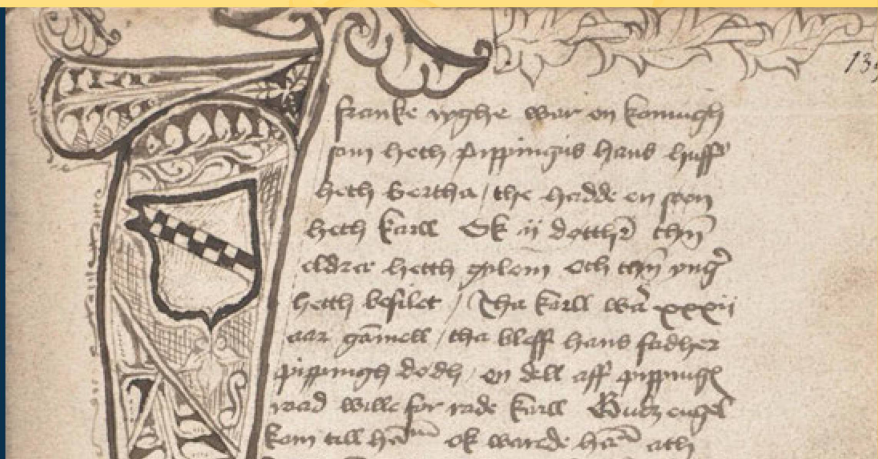 135
Franke ryghe war en konungh
som heth pippingis hans husfrv
heth bertha / the hadde en son
heth karll Ok ij dotthr thn
eldzer hetth gylem och thn yngr
hetth besilet / Tha karll war xxxij
aar gamell / tha bleff hans fadher
pippingh dodh / en dell aff pippings
raad wille for rade karll Gudz engel
kom till hanum ok warede han ath